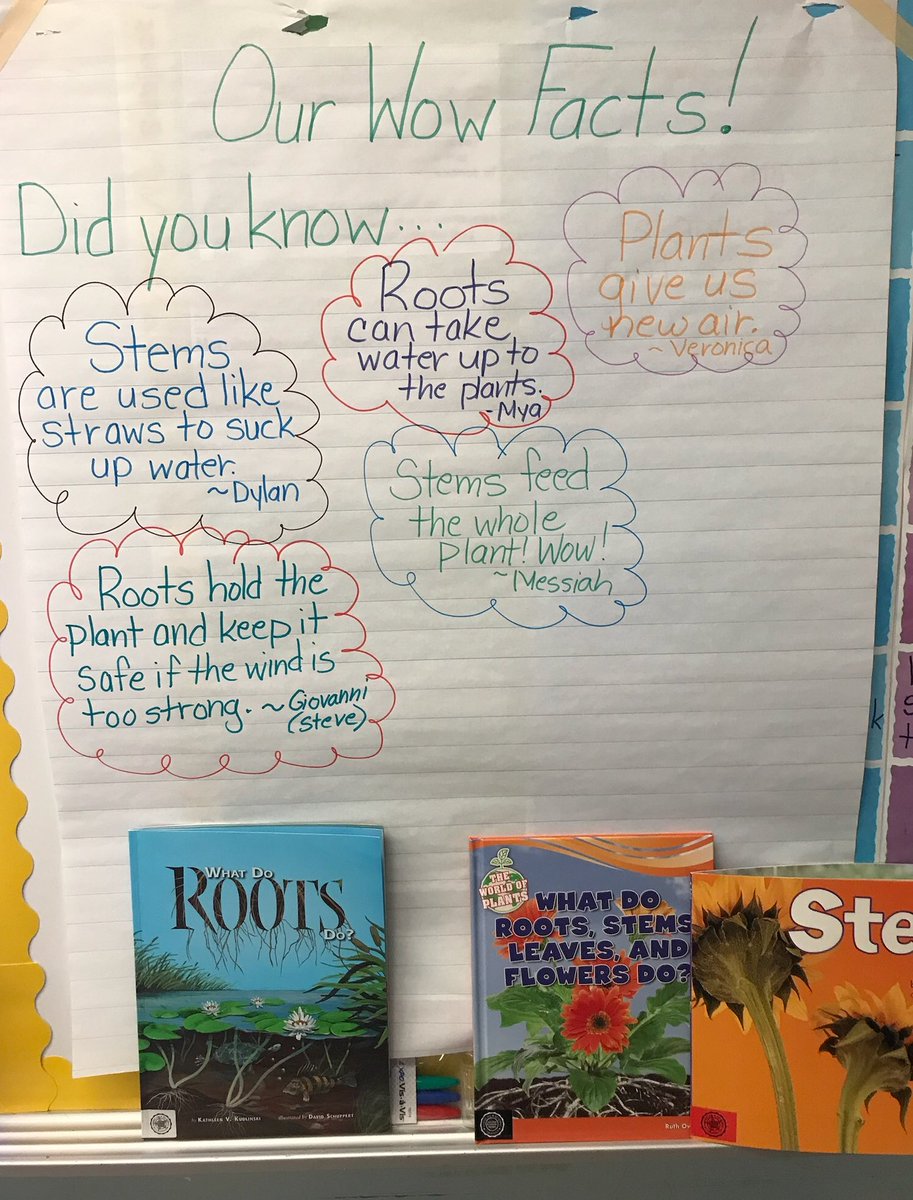 Our Wow Facts!
Did you know...
Stems
are used like
straws to suck
up water.
~Dylan
Roots
can take
water up to
the plants.
-Mya
Plants
give us
new air.
~Veronica
Stems feed
the whole
plant! Wow!
~Messiah
Roots hold the
plant and keep it
safe if the wind is
too strong. ~Giovanni
(Steve)
WHAT DO
ROOTS
DO?
BY KATHLEEN V. KUDLINSKI ILLUSTRATED BY DAVID SCHUPPERT
THE WORLD OF PLANTS
WHAT DO
ROOTS, STEMS
LEAVES, AND
FLOWERS DO?
Ruth
Ste
Vis-à-Vis
k